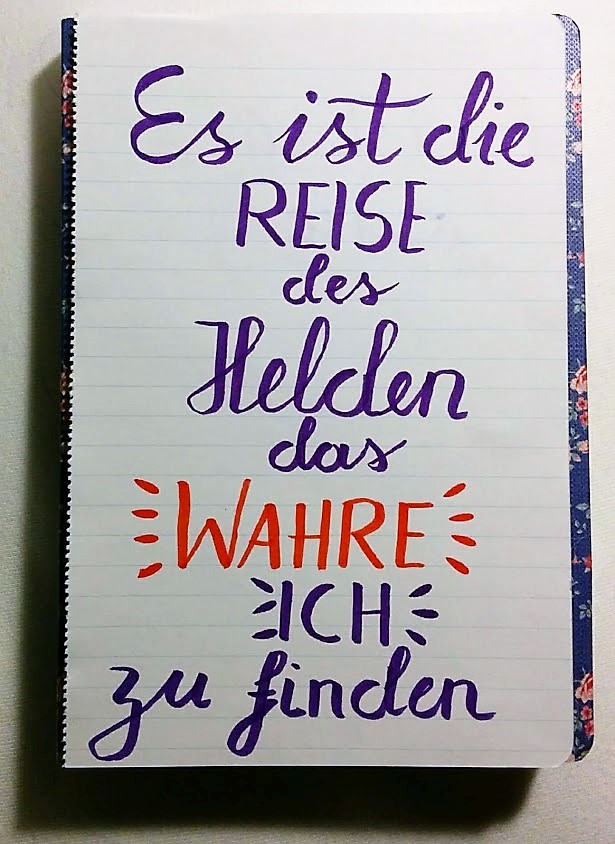 Es ist die
REISE
des
Helden
das
WAHRE
ICH
zu finden